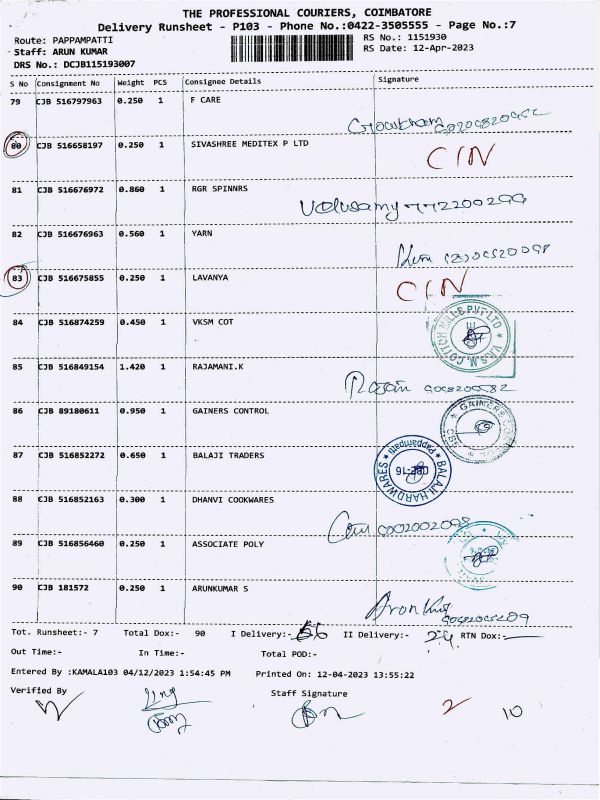 THE PROFESSIONAL COURIERS, COIMBATORE
Delivery Runsheet - P103 - Phone No.:0422-3505555 - Page No.:7
Route: PAPPAMPATTI RS No.: 1151930
Staff: ARUN KUMAR RS Date: 12-Apr-2023
DRS No.: DCJB115193007
S No Consignment No Weight PCS Consignee Details Signature
79 CJB 516797963 0.250 1 F CARE
80 CJB 516658197 0.250 1 SIVASHREE MEDITEX P LTD CIN
81 CJB 516676972 0.860 1 RGR SPINNRS
Velusamy
82 CJB 516676963 0.560 1 YARN
83 CJB 516675855 0.250 1 LAVANYA CIN
84 CJB 516874259 0.450 1 VKSM COT
85 CJB 516849154 1.420 1 RAJAMANI.K
86 CJB 89180611 0.950 1 GAINERS CONTROL
87 CJB 516852272 0.650 1 BALAJI TRADERS
BALAJI HARDWARES Pappampatti CBE-16
88 CJB 516852163 0.300 1 DHANVI COOKWARES
89 CJB 516856460 0.250 1 ASSOCIATE POLY
90 CJB 181572 0.250 1 ARUNKUMAR S
Tot. Runsheet:- 7 Total Dox:- 90 I Delivery:- 66 II Delivery:- 24 RTN Dox:-
Out Time:- In Time:- Total POD:-
Entered By :KAMALA103 04/12/2023 1:54:45 PM Printed On: 12-04-2023 13:55:22
Verified By Staff Signature
2 10